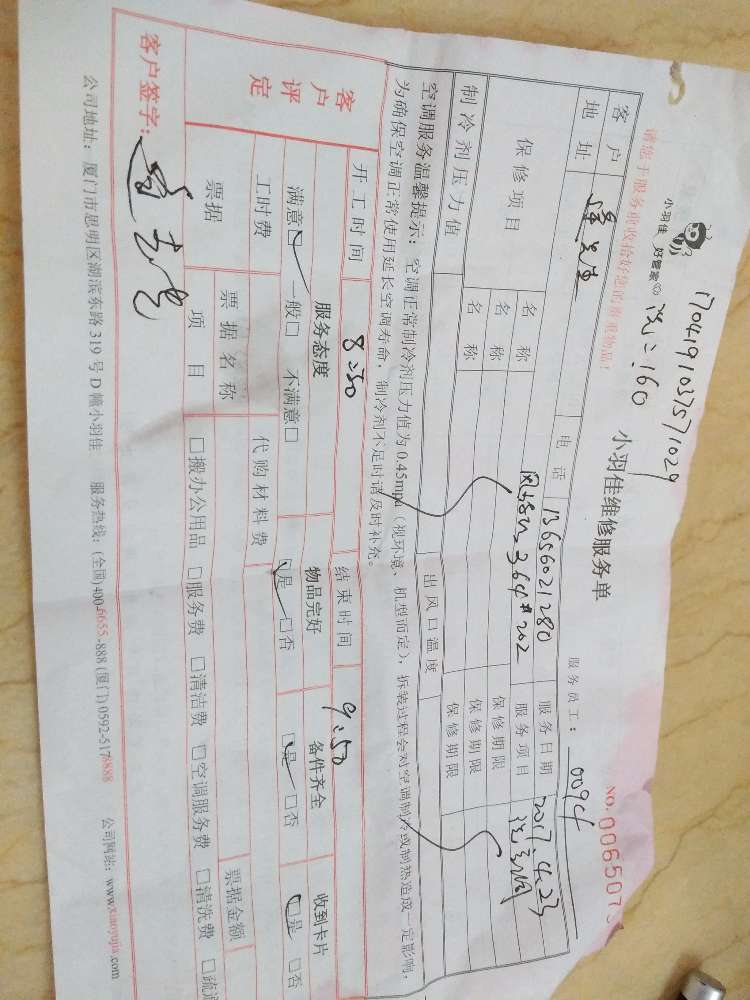 1704191037571029
小羽佳 好管家 洗:160
小羽佳维修服务单
NO.006507
请您于服务前收拾好您的贵重物品!
服务员工: 0094
客户 先生 电话 13656021280 服务日期 2017.4.23
地址 364#202 服务项目 洗空调
保修项目 名称 保修期限
名称 保修期限
制冷剂压力值 名称 出风口温度 保修期限
空调服务温馨提示:空调正常制冷剂压力值为0.45mpa(视环境、机型而定),拆装过程会对空调制冷或制热造成一定影响,
为确保空调正常使用延长空调寿命,制冷剂不足时请及时补充。
开工时间 8:50 结束时间 9:50
客户评定 服务态度 物品完好 备件齐全 收到卡片
满意☑ 一般□ 不满意□ ☑是 □否 ☑是 □否 ☑是 □否
工时费 代购材料费 票据金额
票据 票据名称
项目 □搬办公用品 □服务费 □清洁费 □空调服务费 □清洗费 □疏
客户签字:
公司地址:厦门市思明区湖滨东路319号D幢小羽佳 服务热线:(全国)400-6655-888 (厦门)0592-5178888 公司网站:www.xiaoyujia.com